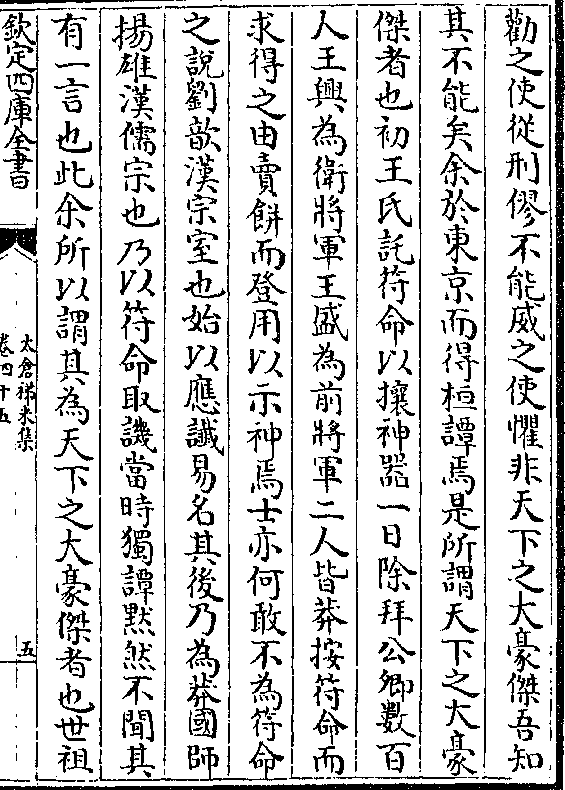 勸之使從刑僇不能威之使懼非天下之大豪傑吾知
其不能矣余於東京而得桓譚焉是所謂天下之大豪
傑者也初王氏託符命以攘神器一日除拜公卿數百
人王興為衛將軍王盛為前將軍二人皆莽按符命而
求得之由賣餅而登用以示神焉士亦何敢不為符命
之說劉歆漢宗室也始以應讖易名其後乃為莽國師
揚雄漢儒宗也乃以符命取譏當時獨譚默然不聞其
有一言也此余所以謂其為天下之大豪傑者也世祖
欽定四庫全書
太倉稊米集
卷四十五
五